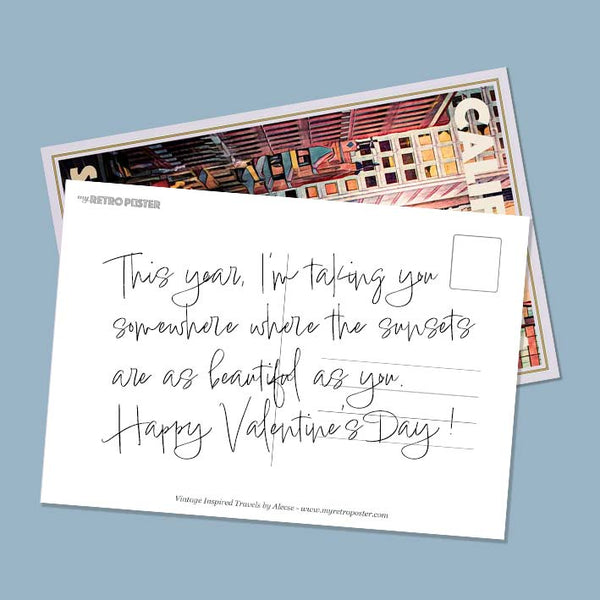 CALIF
S
my RETRO POSTER
This year, I'm taking you
somewhere where the sunsets
are as beautiful as you.
Happy Valentine's Day!
Vintage Inspired Travels by Alecse - www.myretroposter.com